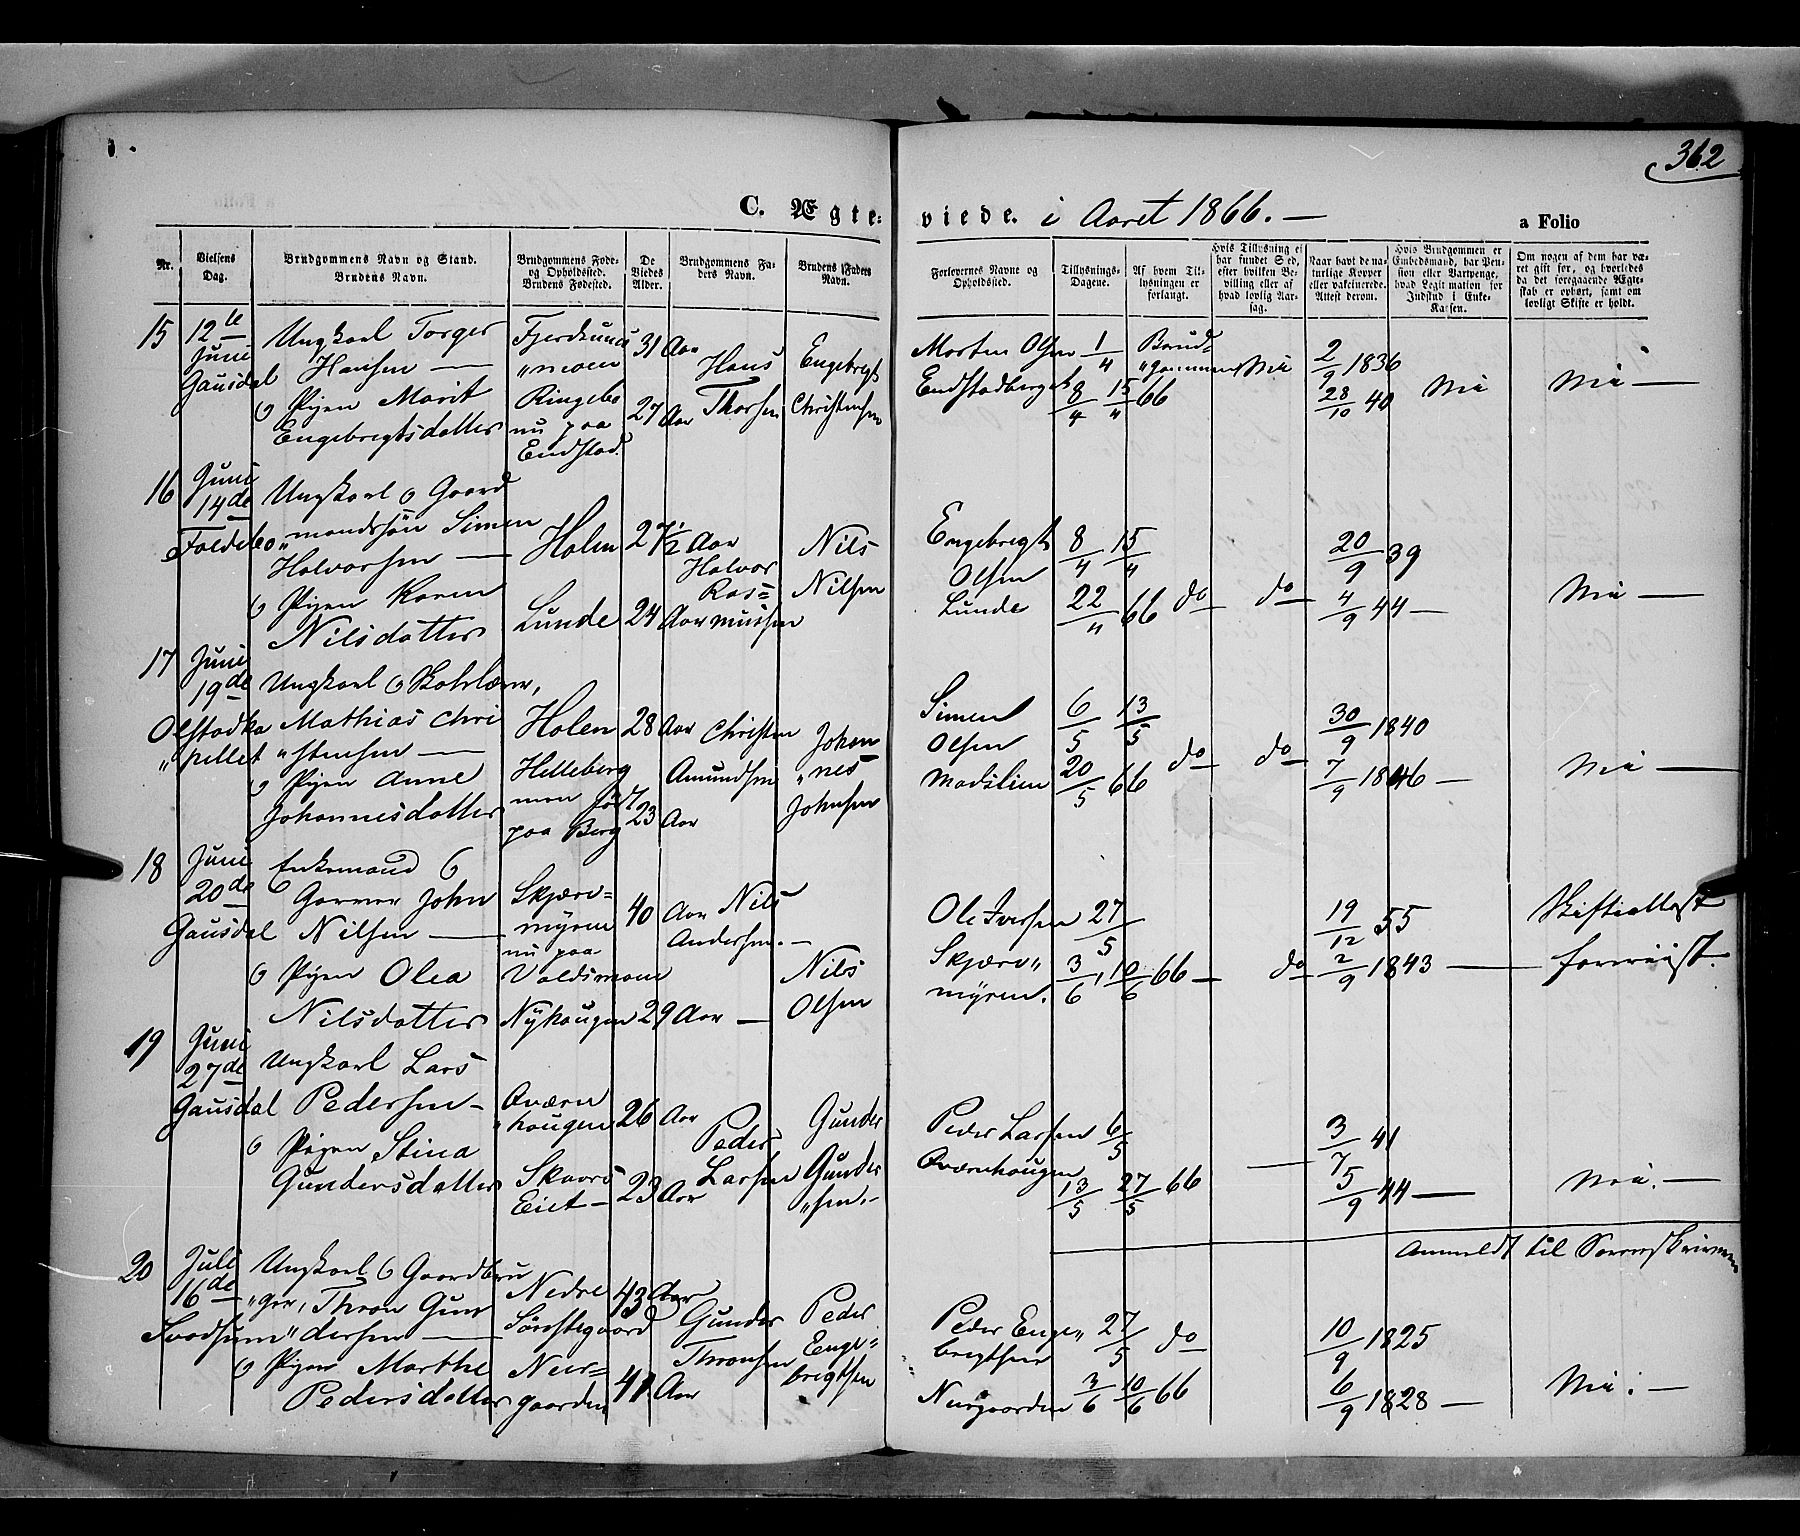 362
C. Ægte- viede. i Aaret 1866. —
a Folio
Nr.
Vielsens Dag.
Brudgommens Navn og Stand. Brudens Navn.
Brudgommens Føde- og Opholdssted. Brudens Fødested.
De Viedes Alder.
Brudgommens Faders Navn.
Brudens Faders Navn.
Forlovernes Navne og Opholdssted.
Tillysnings-Dagene.
Af hvem Tillysningen er forlangt.
Hvis Tillysning ei har fundet Sed, efter hvilken Bevilling eller af hvad lovlig Aarsag.
Naar havt de naturlige Kopper eller vakcinerede. Attest derom.
Hvis Brudgommen er Embedsmand, har Pension eller Vartpenge, hvad Legitimation for Indskud i Enke-Kassen.
Om nogen af dem har været gift før, og hvorledes da det foregaaende Ægteskab er ophørt, samt om lovligt Skifte er holdt.
15 12te Ungkarl Torger
Juni Hansen — 31 Aar Hans Engebregt Morten Olsen 1/4 Brud- 2/9 1836
Gausdal o Pigen Marit Ringebo 27 Aar Thorsen Christensen 8/4 15/4 66 "gommen 28/10 40
Engebregtsdatter nu paa
Endstad.
16 Juni Ungkarl o Gaard
14de "mandssøn Simen Holen 27 1/2 Aar Nils Engebregt 8/4 15/4 20/9 39
Halvorsen — Halvor Olsen
o Pigen Karen Ras= Nilsen Lunde 22/4 66 do do 4/9 44 —
Nilsdatter Lunde 24 Aar mussen
17 Juni
19de Ungkarl o
Olstadka Mathias Chri Holen 28 Aar Christen Johan Simen 6/5 13/5 30/9 1840
"pellet "stensen — Olsen
o Pigen Anne Helleberg Amundsen "nes 20/5 66 do do 7/9 1846 —
Johannesdatter paa Berg 23 Aar Johnsen
18 Juni Enkemand o
20de Garver John Skjære= 40 Aar Nils Ole Iversen 27/5 19/12 55
Gausdal Nilsen — myren Andersen. —
nu paa
o Pigen Olea Nils Skjære" 3/6 10/6 66 — do 2/9 1843 —
Nilsdatter Nyhougen 29 Aar — Olsen myren.
19 Juni Ungkarl Lars
27de
Gausdal Pedersen — Qværn 26 Aar Gunder Peder Larsen 6/5 3/7 41
"hougen Peder
o Pigen Stina Larsen Gunder Qværnhougen
Gundersdatter Eiet — 23 Aar "sen. — 13/5 27/5 66 — 5/9 44 —
Anmeldt til Sorenskriveren
20 Juli Ungkarl o Gaardbru Nedre 43 Aar
16de "ger, Thron Gun Gunder Peder Peder Enge" 27/5 do 10/9 1825
"dersen — Thronsen Enge= bregtsen
o Pigen Marthe 41 Aar bregtsen 3/6 10/6 66 6/9 1828 —
Pedersdatter gaarden